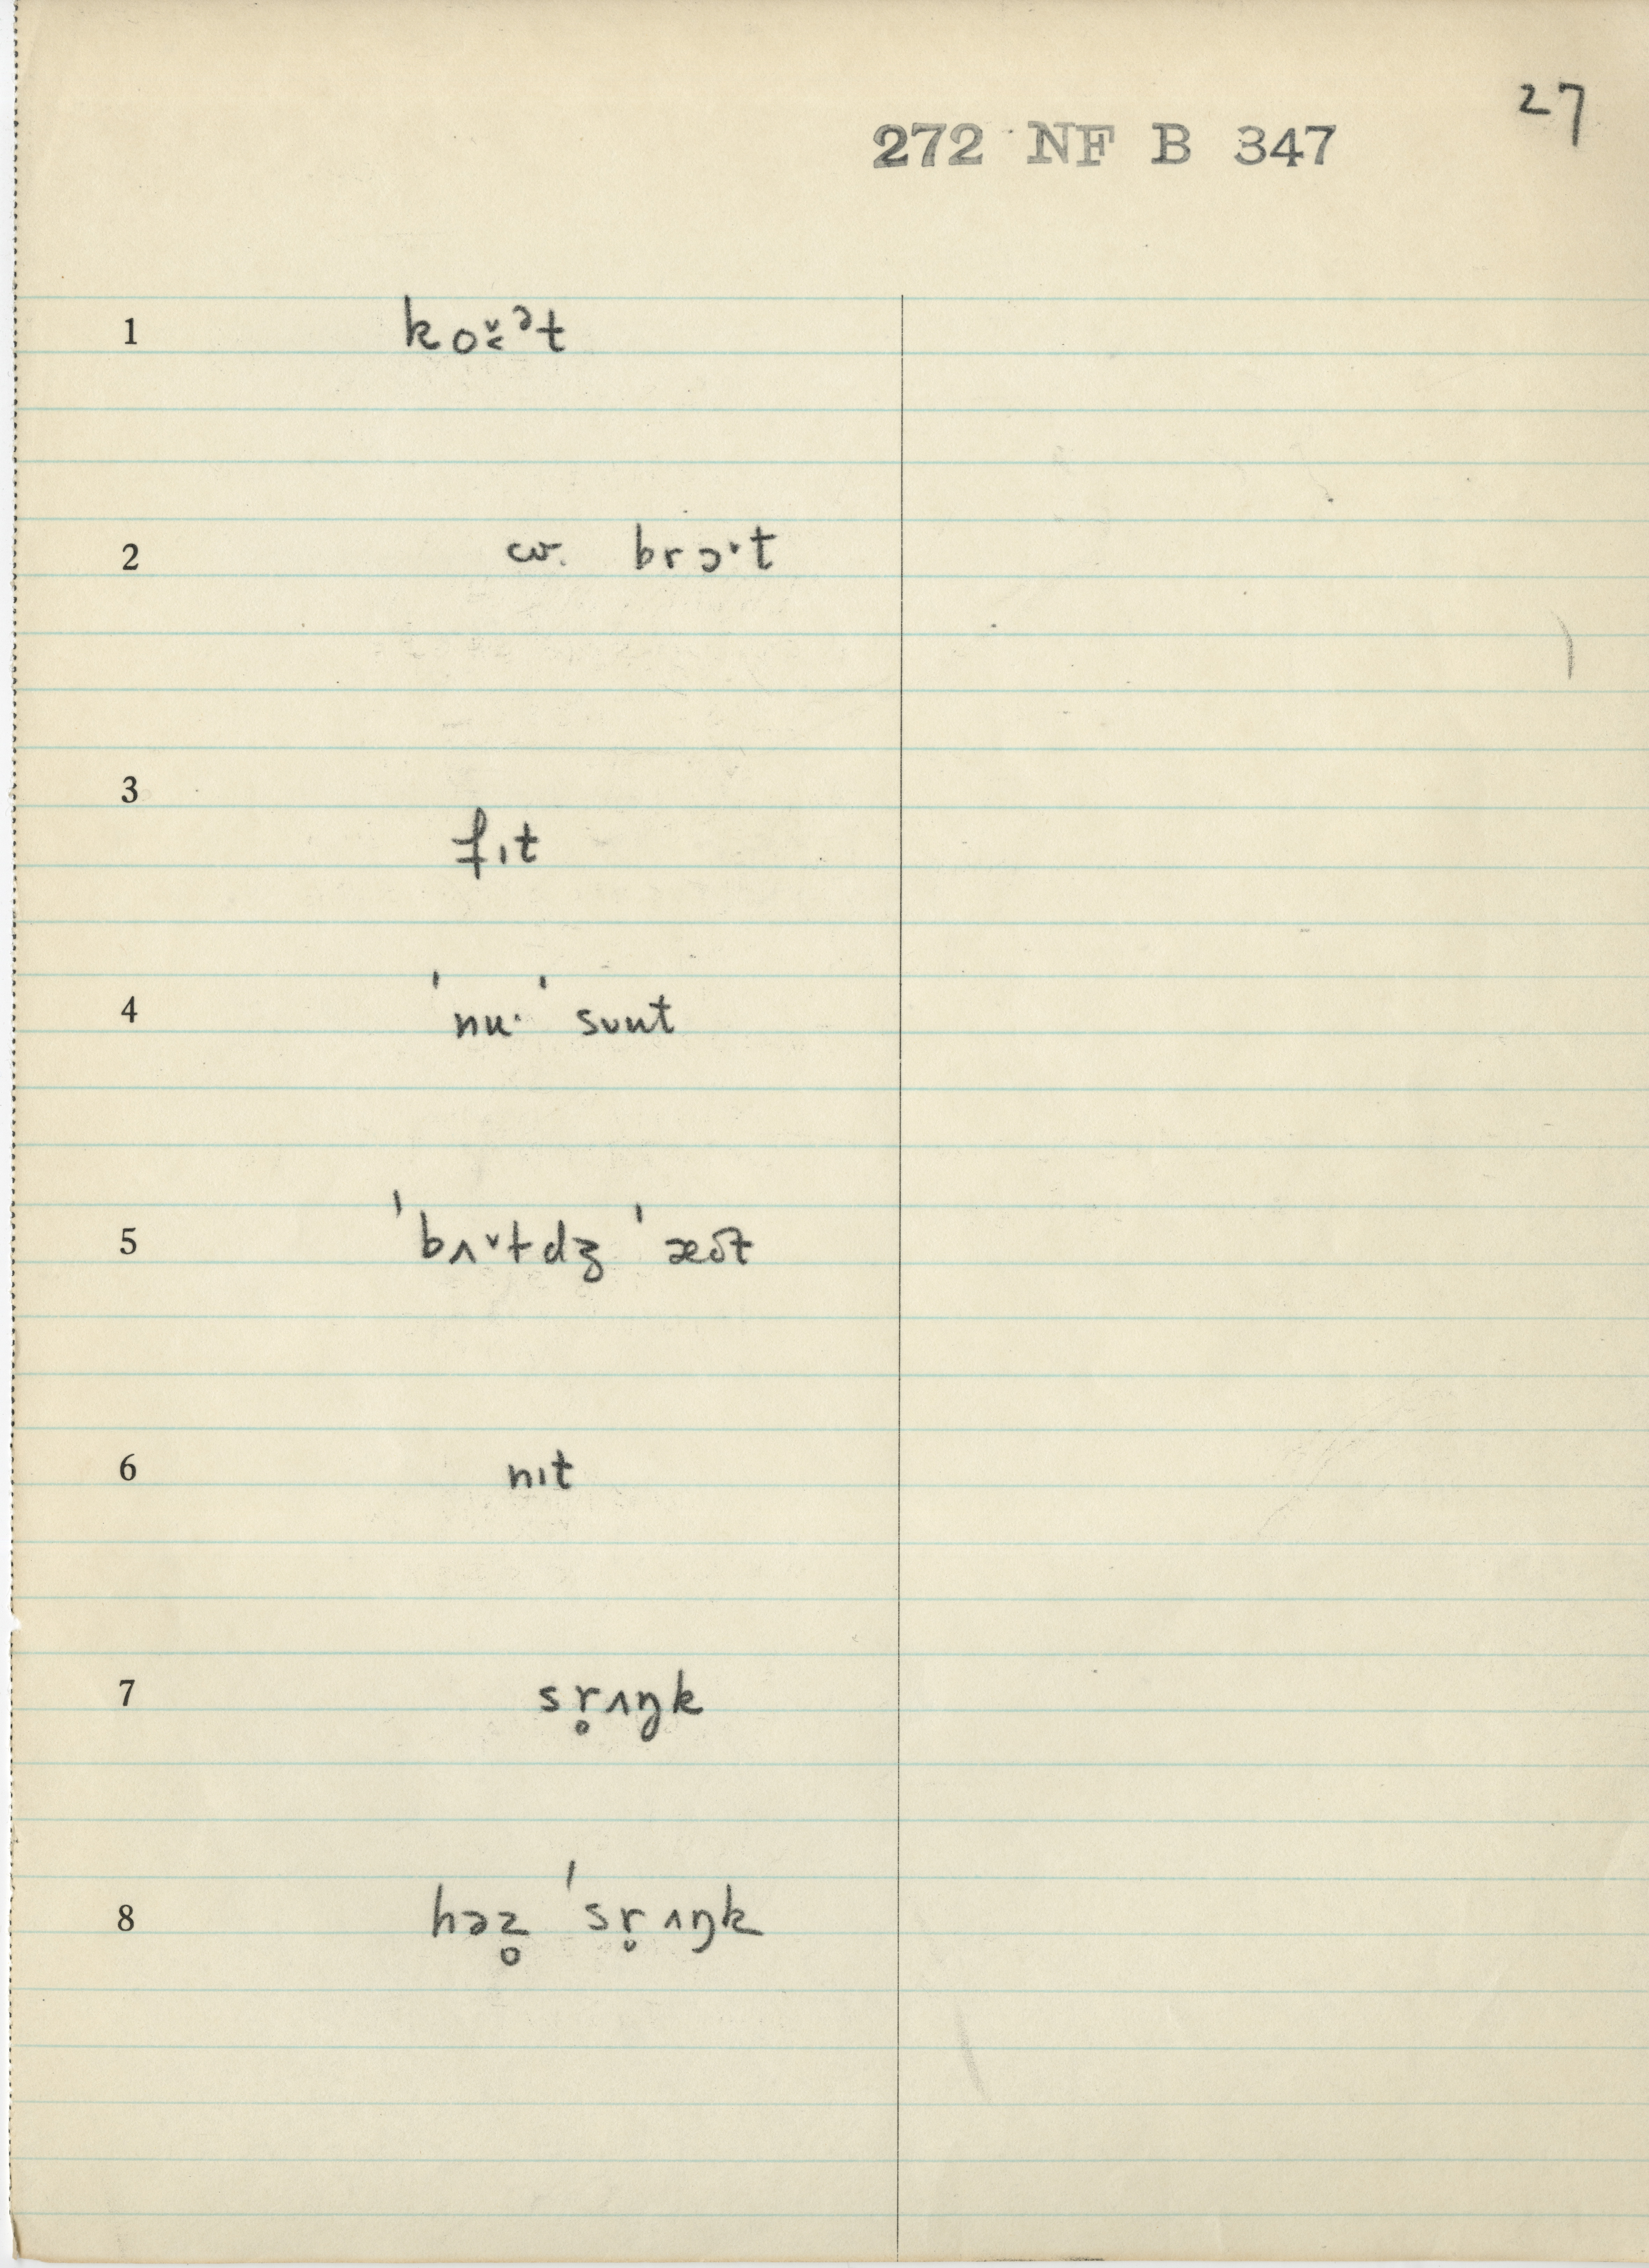 27
272 NF B 347
1 ko˅˂ᵊt
2 cv. brɔ˞t
3 fɪt
4 ˈnu· ˈsuut
5 ˈbʌ˅tdʒ ˈæδt
6 nɪt
7 sr̥ʌŋk
8 həz̥ ˈsr̥ʌŋk